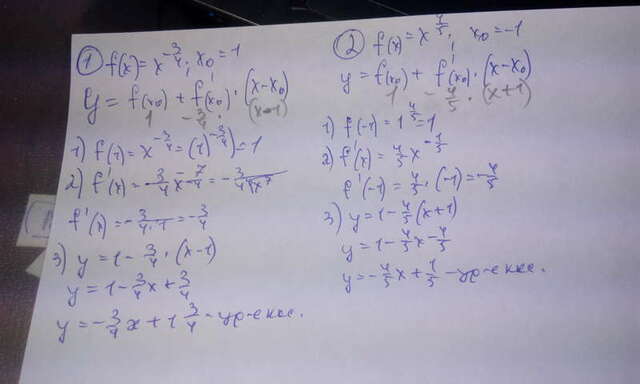 ① f(x) = x^{-3/4}; x₀ = 1
y = f(x₀) + f'(x₀) · (x - x₀)
1 - 3/4 · (x-1)
1) f(1) = x^{-3/4} = (1)^{-3/4} = 1
2) f'(x) = -3/4 x^{-7/4} = -3/(4 ⁴√x⁷)
f'(x) = -3/(4·1) = -3/4
3) y = 1 - 3/4 · (x-1)
y = 1 - 3/4 x + 3/4
y = -3/4 x + 1 3/4 - ур-е кас.
② f(x) = x^{4/5}; x₀ = -1
y = f(x₀) + f'(x₀) · (x - x₀)
1 - 4/5 · (x+1)
1) f(-1) = 1^{4/5} = 1
2) f'(x) = 4/5 x^{-1/5}
f'(-1) = 4/5 · (-1) = -4/5
3) y = 1 - 4/5 (x+1)
y = 1 - 4/5 x - 4/5
y = -4/5 x + 1/5 - ур-е кас.